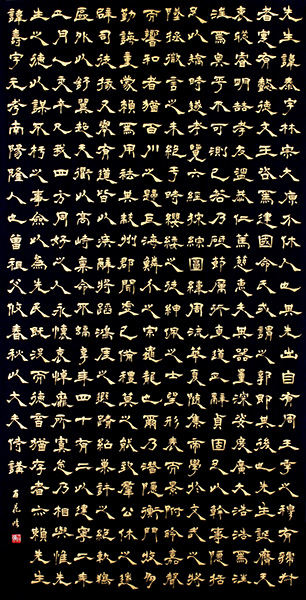 先生諱泰字林宗太原介休人也其先出自有周王季之穆有虢叔
者寔有懿德文王咨焉建國命氏或謂之郭即其後也先生誕膺天
衷聰睿明哲孝友溫恭仁篤慈惠夫其器量弘深姿度廣大浩浩
焉汪汪焉奧乎不可測已若乃砥節厲行直道正辭貞固足以幹事隱括
足以矯時遂考覽六經探綜圖緯周流華夏隨集帝學收文武之將
墜拯微言之未絕于時纓緌之徒紳佩之士望形表而影附聆嘉聲
而響和者猶百川之歸巨海鱗介之宗龜龍也爾乃潛隱衡門收朋
勤誨童蒙賴焉用祛其蔽州郡聞德虛己備禮莫之能致群公休之遂
辟司徒掾又舉有道皆以疾辭將蹈鴻涯之遐跡紹巢許之絕軌翔
區外以舒翼超天衢以高峙稟命不融享年四十有二以建寧二年
正月乙亥卒凡我四方同好之人永懷哀悼靡所寘念乃相與惟先
生之德以謀不朽之事僉以為先民既沒而德音猶存者亦賴先生
諱壽字元考南陽隆人也曾祖父攸春秋以大夫侍講